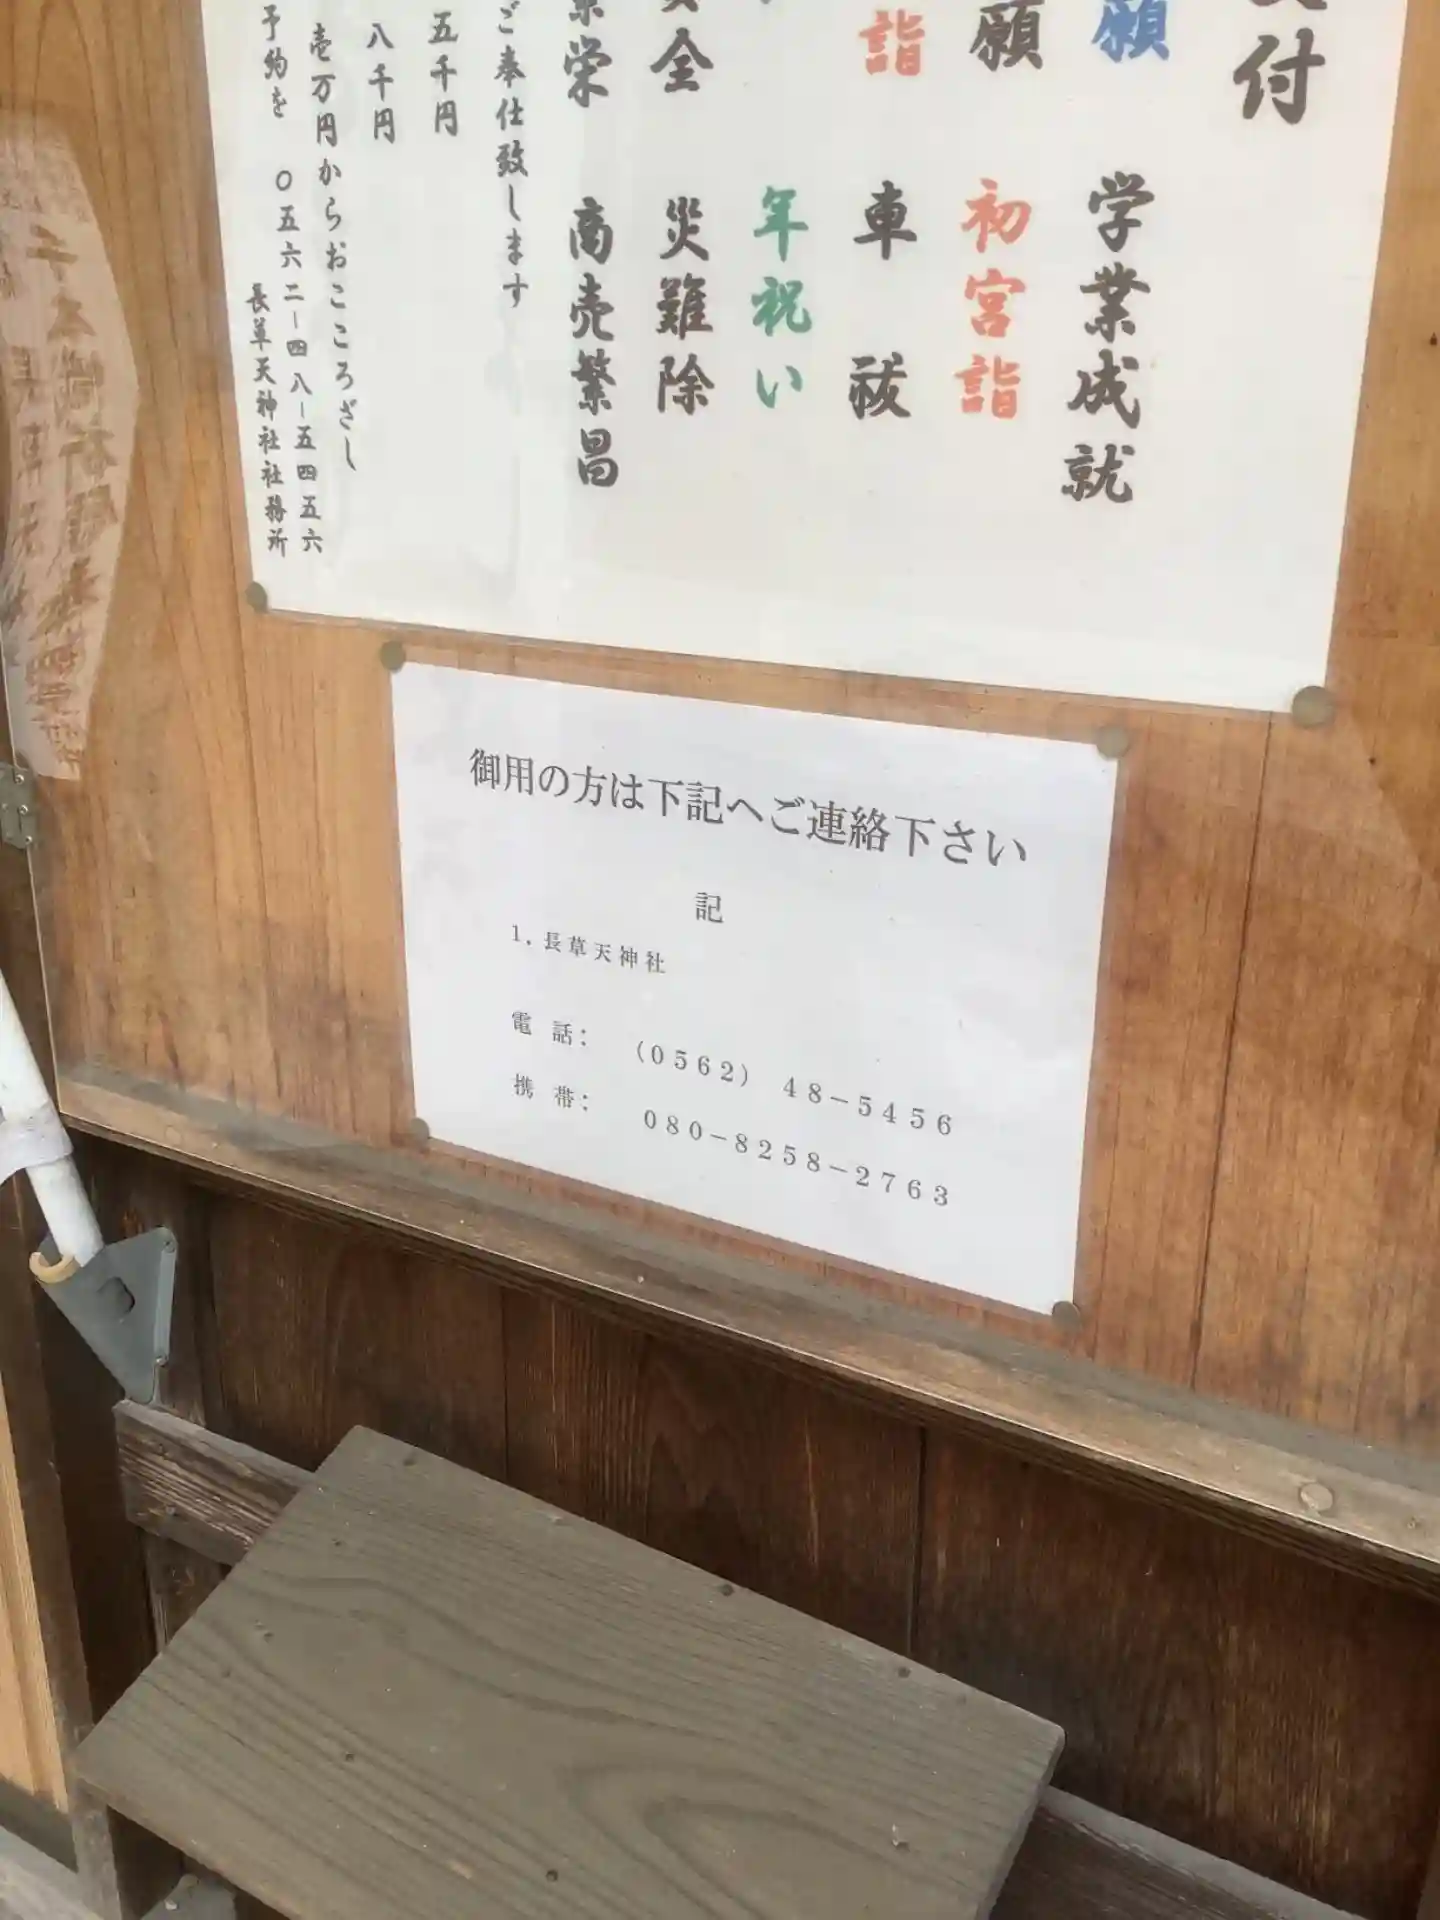 付
願 学業成就
願 初宮詣
詣 車祓
年祝い
全 災難除
栄 商売繁昌
ご奉仕致します
五千円
八千円
壱万円からおこころざし
予約を 〇五六二-四八-五四五六
長草天神社社務所
御用の方は下記へご連絡下さい
記
1. 長草天神社
電 話: (0562) 48-5456
携 帯: 080-8258-2763